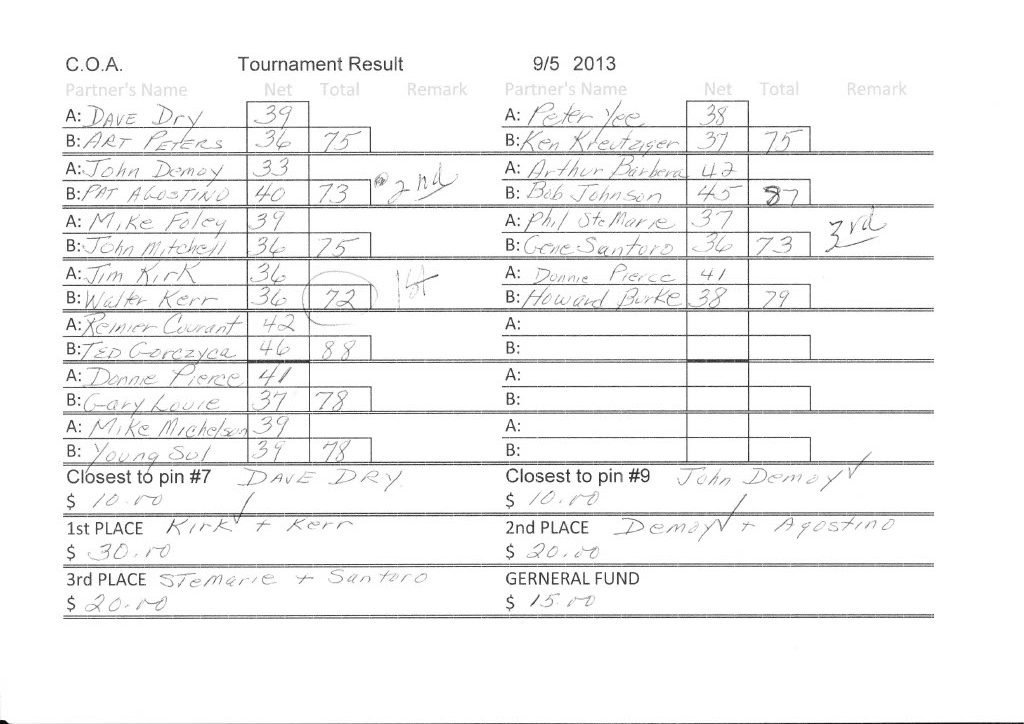 C.O.A. Tournament Result 9/5 2013
Partner's Name Net Total Remark Partner's Name Net Total Remark
A: DAVE Dry 39 A: Peter Yee 38
B: ART PETERS 36 75 B: Ken Kreutzger 37 75
A: John Demoy 33 A: Arthur Barbera 42
B: PAT AGOSTINO 40 73 2nd B: Bob Johnson 45 87
A: Mike Foley 39 A: Phil Ste Marie 37
B: John Mitchell 36 75 B: Gene Santoro 36 73 3rd
A: Jim Kirk 36 A: Donnie Pierce 41
B: Walter Kerr 36 72 1st B: Howard Burke 38 79
A: Reinier Courant 42 A:
B: TED Gorczyca 46 88 B:
A: Donnie Pierce 41 A:
B: Gary Louie 37 78 B:
A: Mike Michelson 39 A:
B: Young Sul 39 78 B:
Closest to pin #7 DAVE DRY Closest to pin #9 John Demoy
$ 10.00 $ 10.00
1st PLACE Kirk + Kerr 2nd PLACE Demoy + Agostino
$ 30.00 $ 20.00
3rd PLACE STeMarie + Santoro GERNERAL FUND
$ 20.00 $ 15.00